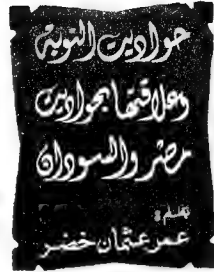 حواديت النوبة
وعلاقتها بحواديت
مصر والسودان
بقلم:
عمر عثمان خضر